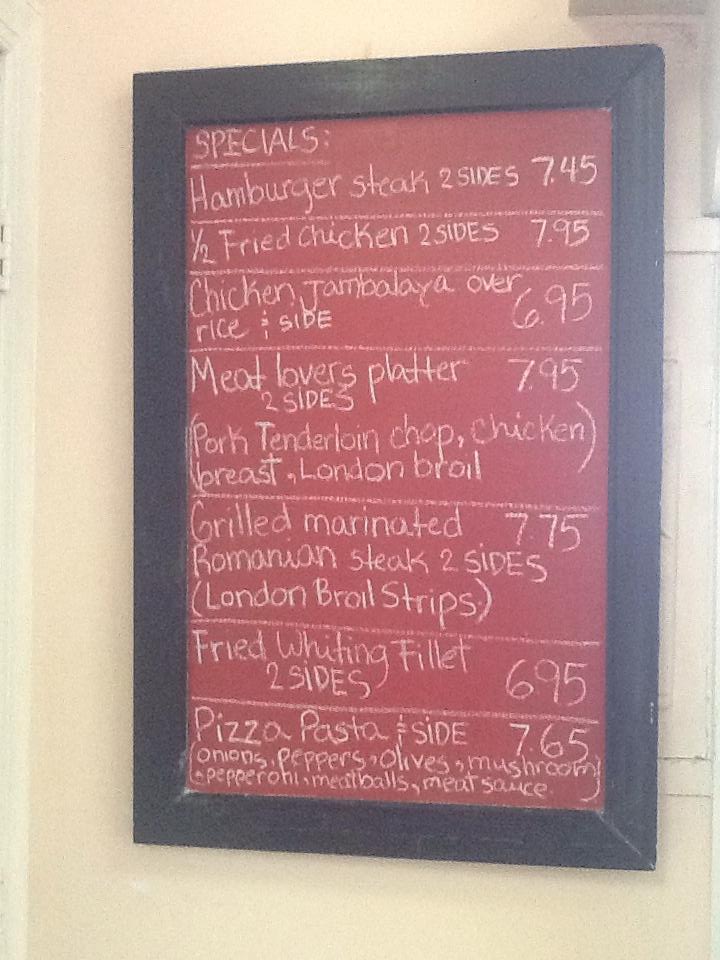 SPECIALS:
Hamburger steak 2 SIDES 7.45
½ Fried Chicken 2 SIDES 7.95
Chicken Jambalaya over
rice & SIDE 6.95
Meat lovers platter 7.95
2 SIDES
(Pork Tenderloin chop, chicken)
breast, London broil
Grilled marinated 7.75
Romanian steak 2 SIDES
(London Broil Strips)
Fried Whiting Fillet
2 SIDES 695
Pizza Pasta & SIDE 7.65
(onions, peppers, olives, mushroom)
pepperoni, meatballs, meat sauce